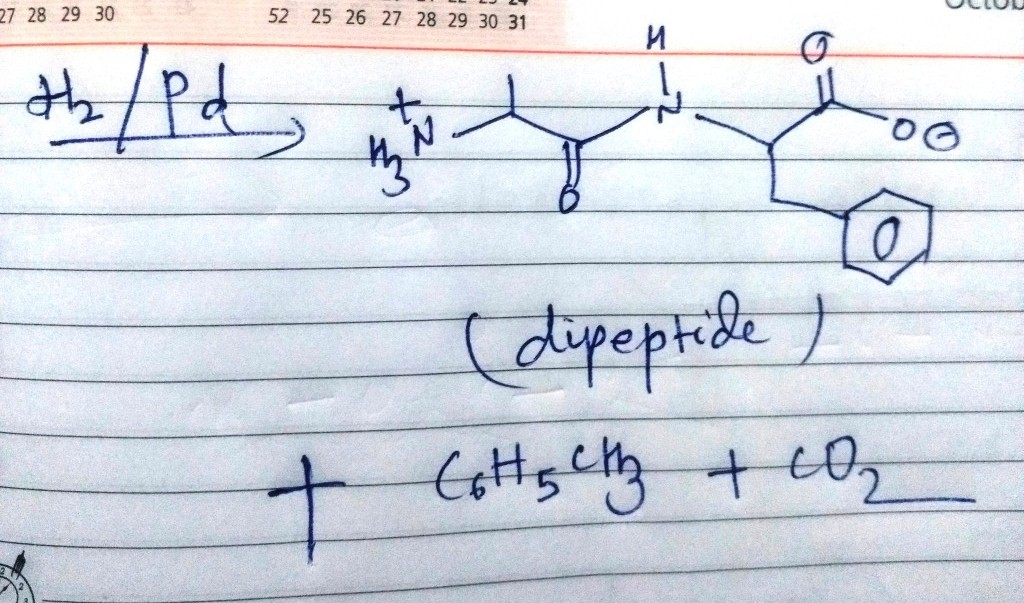 27 28 29 30
52 25 26 27 28 29 30 31
H₂/Pd
H
O
H₃N⁺
N
O⊖
O
(dipeptide)
+ C₆H₅CH₃ + CO₂